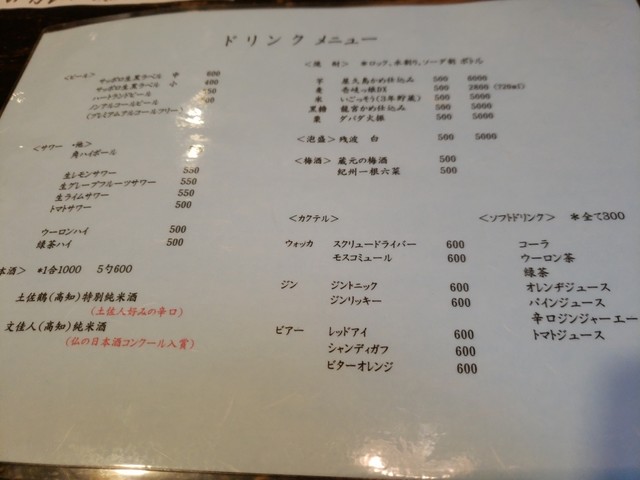 ドリンクメニュー
<ビール>
サッポロ生黒ラベル 中 600
サッポロ生黒ラベル 小 400
ハートランドビール
ノンアルコールビール
(プレミアムアルコールフリー)
<サワー・他>
角ハイボール
生レモンサワー 550
生グレープフルーツサワー 550
生ライムサワー 550
トマトサワー 500
ウーロンハイ 500
緑茶ハイ 500
本酒> *1合1000 5勺600
土佐鶴(高知)特別純米酒
(土佐人好みの辛口)
文佳人(高知)純米酒
(仏の日本酒コンクール入賞)
<焼 酎> *ロック、水割り、ソーダ割 ボトル
芋 屋久島かめ仕込み 500 6000
麦 壱岐っ娘DX 500 2800 (720ml)
米 いごっそう(3年貯蔵) 500 5000
黒糖 龍宮かめ仕込み 500 5000
栗 ダバダ火振 500 5000
<泡盛> 残波 白 500 5000
<梅酒> 蔵元の梅酒 500
紀州一根六菜 500
<カクテル>
ウォッカ スクリュードライバー 600
モスコミュール 600
ジン ジントニック 600
ジンリッキー 600
ビアー レッドアイ 600
シャンディガフ 600
ビターオレンジ 600
<ソフトドリンク> *全て300
コーラ
ウーロン茶
緑茶
オレンヂジュース
パインジュース
辛口ジンジャーエー
トマトジュース